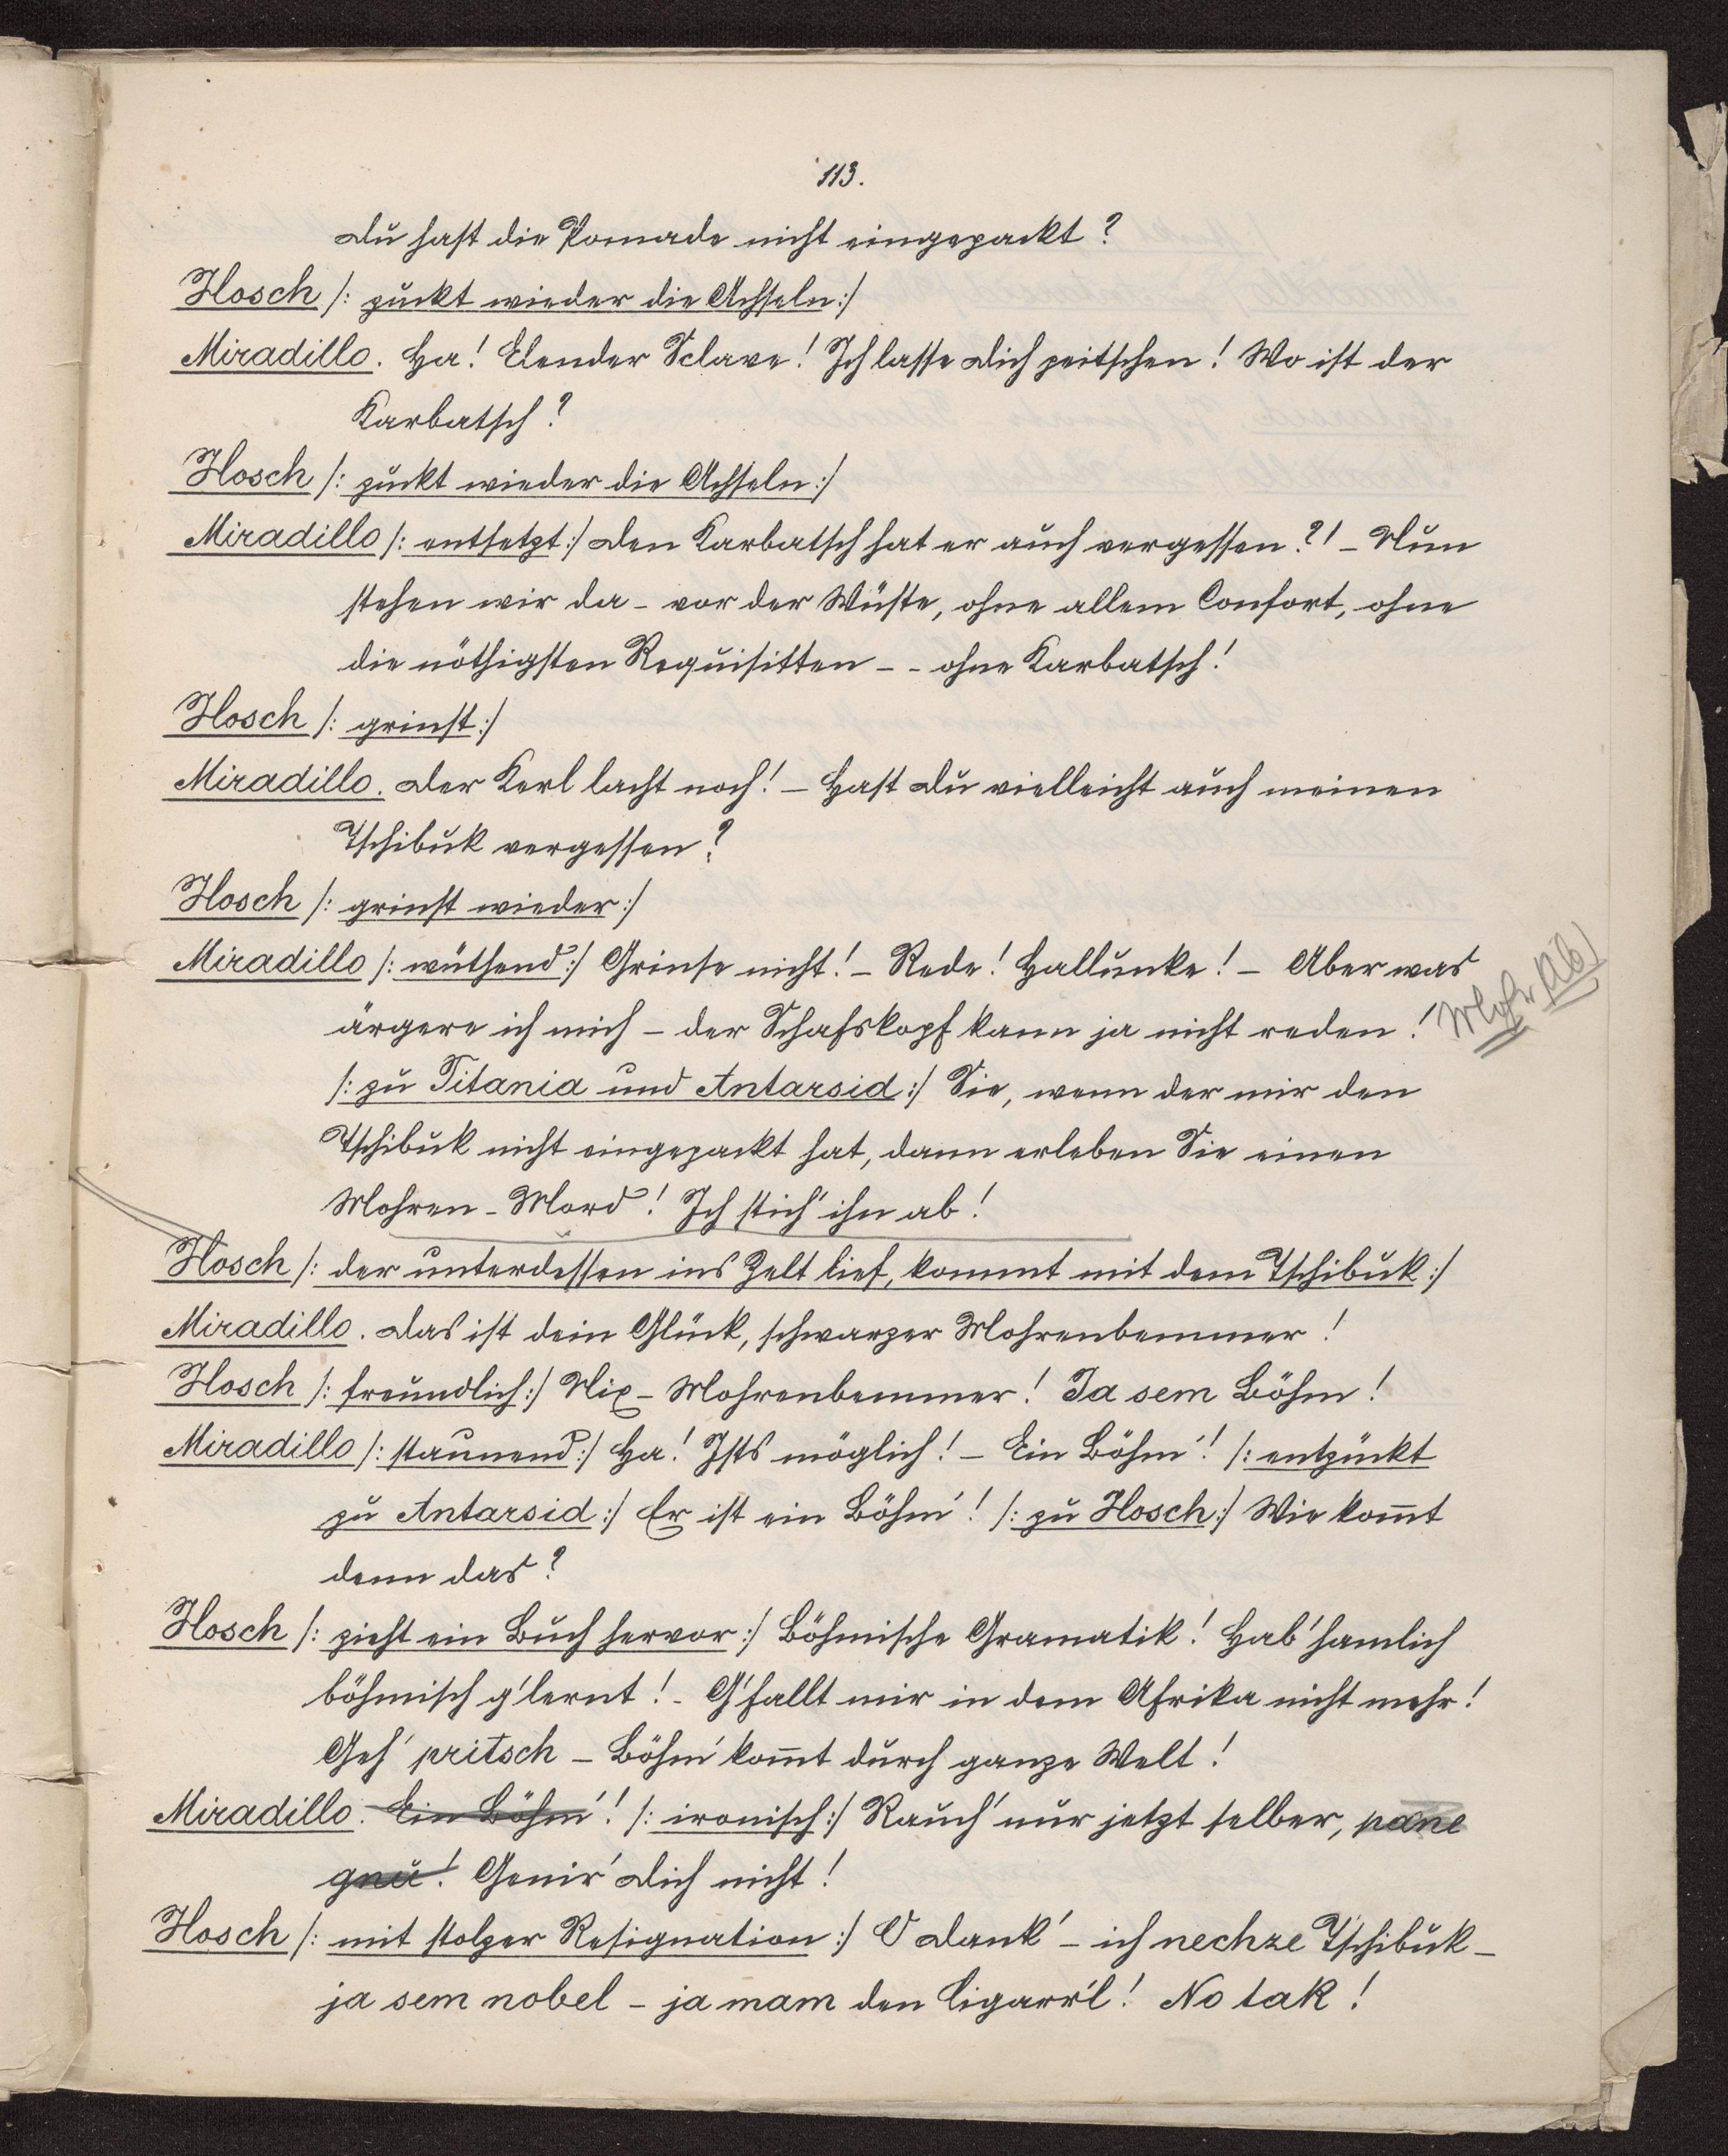 113.
Du hast die Pomade nicht eingepackt?
Hosch /: zuckt wieder die Achseln :/
Miradillo. Ha! Elender Sclave! Ich lasse Dich peitschen! Wo ist der
Karbatsch?
Hosch /: zuckt wieder die Achseln :/
Miradillo /: entsetzt :/ Den Karbatsch hat er auch vergessen?! – Nun
stehen wir da – vor der Wüste, ohne allem Confort, ohne
die nöthigsten Requisitten – – ohne Karbatsch!
Hosch /: grinst :/
Miradillo. Der Kerl lacht noch! – Hast Du vielleicht auch meinen
Tschibuk vergessen?
Hosch /: grinst wieder :/
Miradillo /: wüthend :/ Grinse nicht! – Rede! Hallunke! – Aber was
ärgere ich mich – der Schafskopf kann ja nicht reden! Mohr (Ab)
/: zu Titania und Antarsid :/ Sie, wenn der mir den
Tschibuk nicht eingepackt hat, dann erleben Sie einen
Mohren-Mord! Ich stich' ihn ab!
Hosch /: der unterdessen ins Zelt lief, kommt mit dem Tschibuk :/
Miradillo. Das ist dein Glück, schwarzer Mohrenbemmer!
Hosch /: freundlich :/ Nix – Mohrenbemmer! Ja sem Böhm!
Miradillo /: staunend :/ Ha! Ists möglich! – Ein Böhm'! /: entzückt
zu Antarsid :/ Er ist ein Böhm'! /: zu Hosch :/ Wie kom̅t
denn das?
Hosch /: zieht ein Buch hervor :/ Böhmische Gramatik! Hab' hamlich
böhmisch g'lernt! – G'fallt mir in dem Afrika nicht mehr!
Geh' pritsch – Böhm' kom̅t durch ganze Welt!
Miradillo. Ein Böhm'! /: ironisch :/ Rauch' nur jetzt selber, pane
gnu! Genir' Dich nicht!
Hosch /: mit stolzer Resignation :/ O Dank' – ich nechze Tschibuk –
ja sem nobel – ja mam den Cigarr'l! No tak!